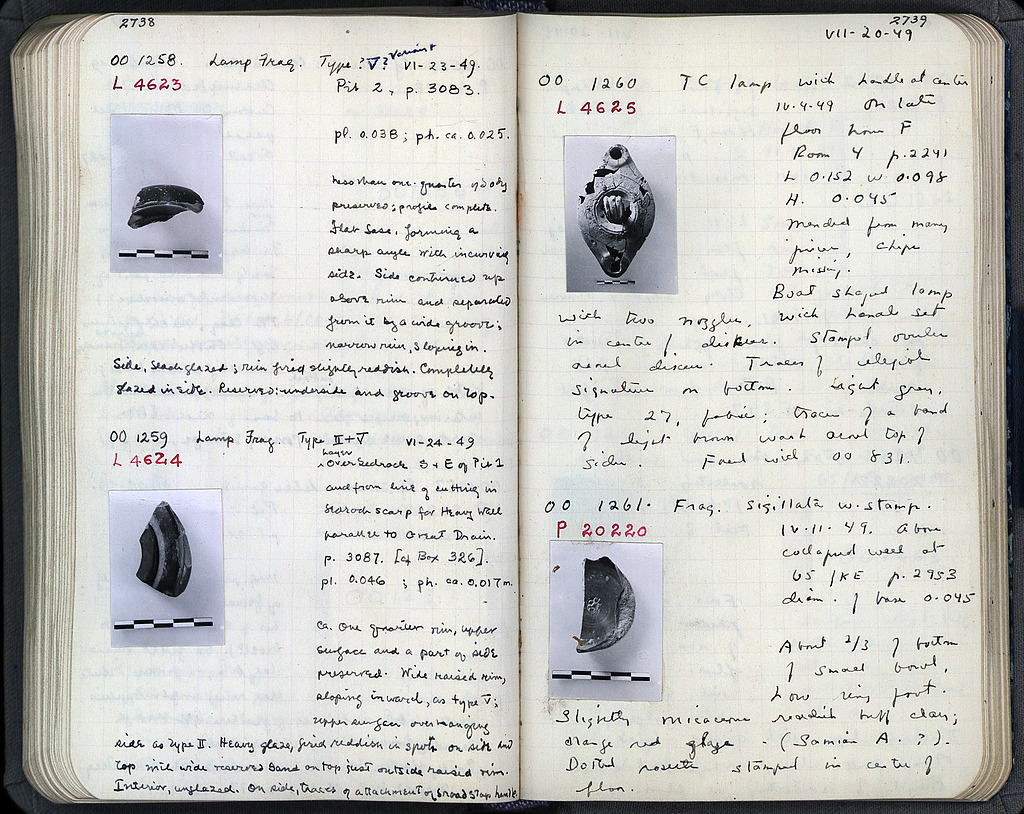 2738
OO 1258. Lamp Frag. Type ? V? variant VI-23-49.
L 4623
Pit 2, p. 3083.
pl. 0.038; ph. ca. 0.025.
Less than one-quarter of body
preserved; profile complete.
Flat base, forming a
sharp angle with incurving
side. Side continued up
above rim and separated
from it by a wide groove;
narrow rim, sloping in.
Side, black glazed; rim fired slightly reddish. Completely
glazed inside. Reserved: underside and groove on top.
OO 1259 Lamp Frag. Type II+V VI-24-49
L 4624
Layer
Over bedrock S+E of Pit 1
and from line of cutting in
bedrock scarp for Heavy Wall
parallel to Great Drain.
p. 3087. [cf Box 326].
pl. 0.046 ; ph. ca. 0.017 m.
ca. One quarter rim, upper
surface and a part of side
preserved. Wide raised rim,
sloping inward, as type V;
upper surface overhanging
side as type II. Heavy glaze, fired reddish in spots on side and
top with wide reserved band on top just outside raised rim.
Interior, unglazed. On side, traces of attachment of broad strap handle.
2739
VII-20-49
OO 1260 TC lamp with handle at center
L 4625
IV-4-49 On late
floor from F
Room 4 p. 2241
L 0.152 W 0.098
H. 0.045
Mended from many
pieces, chips
missing.
Boat shaped lamp
with two nozzles, with handle set
in centre of discus. Stamped ovules
around discus. Traces of illegible
signature on bottom. Light grey,
type 27, fabric; traces of a band
of light brown wash around top of
sides. Found with OO 831.
OO 1261. Frag. sigillata w. stamp.
P 20220
IV-11-49. Above
collapsed well at
65/KE p. 2953
diam. of base 0.045
About 2/3 of bottom
of small bowl,
Low ring foot.
Slightly micaceous reddish buff clay;
orange red glaze - (Samian A. ?).
Dotted rosette stamped in centre of
floor.